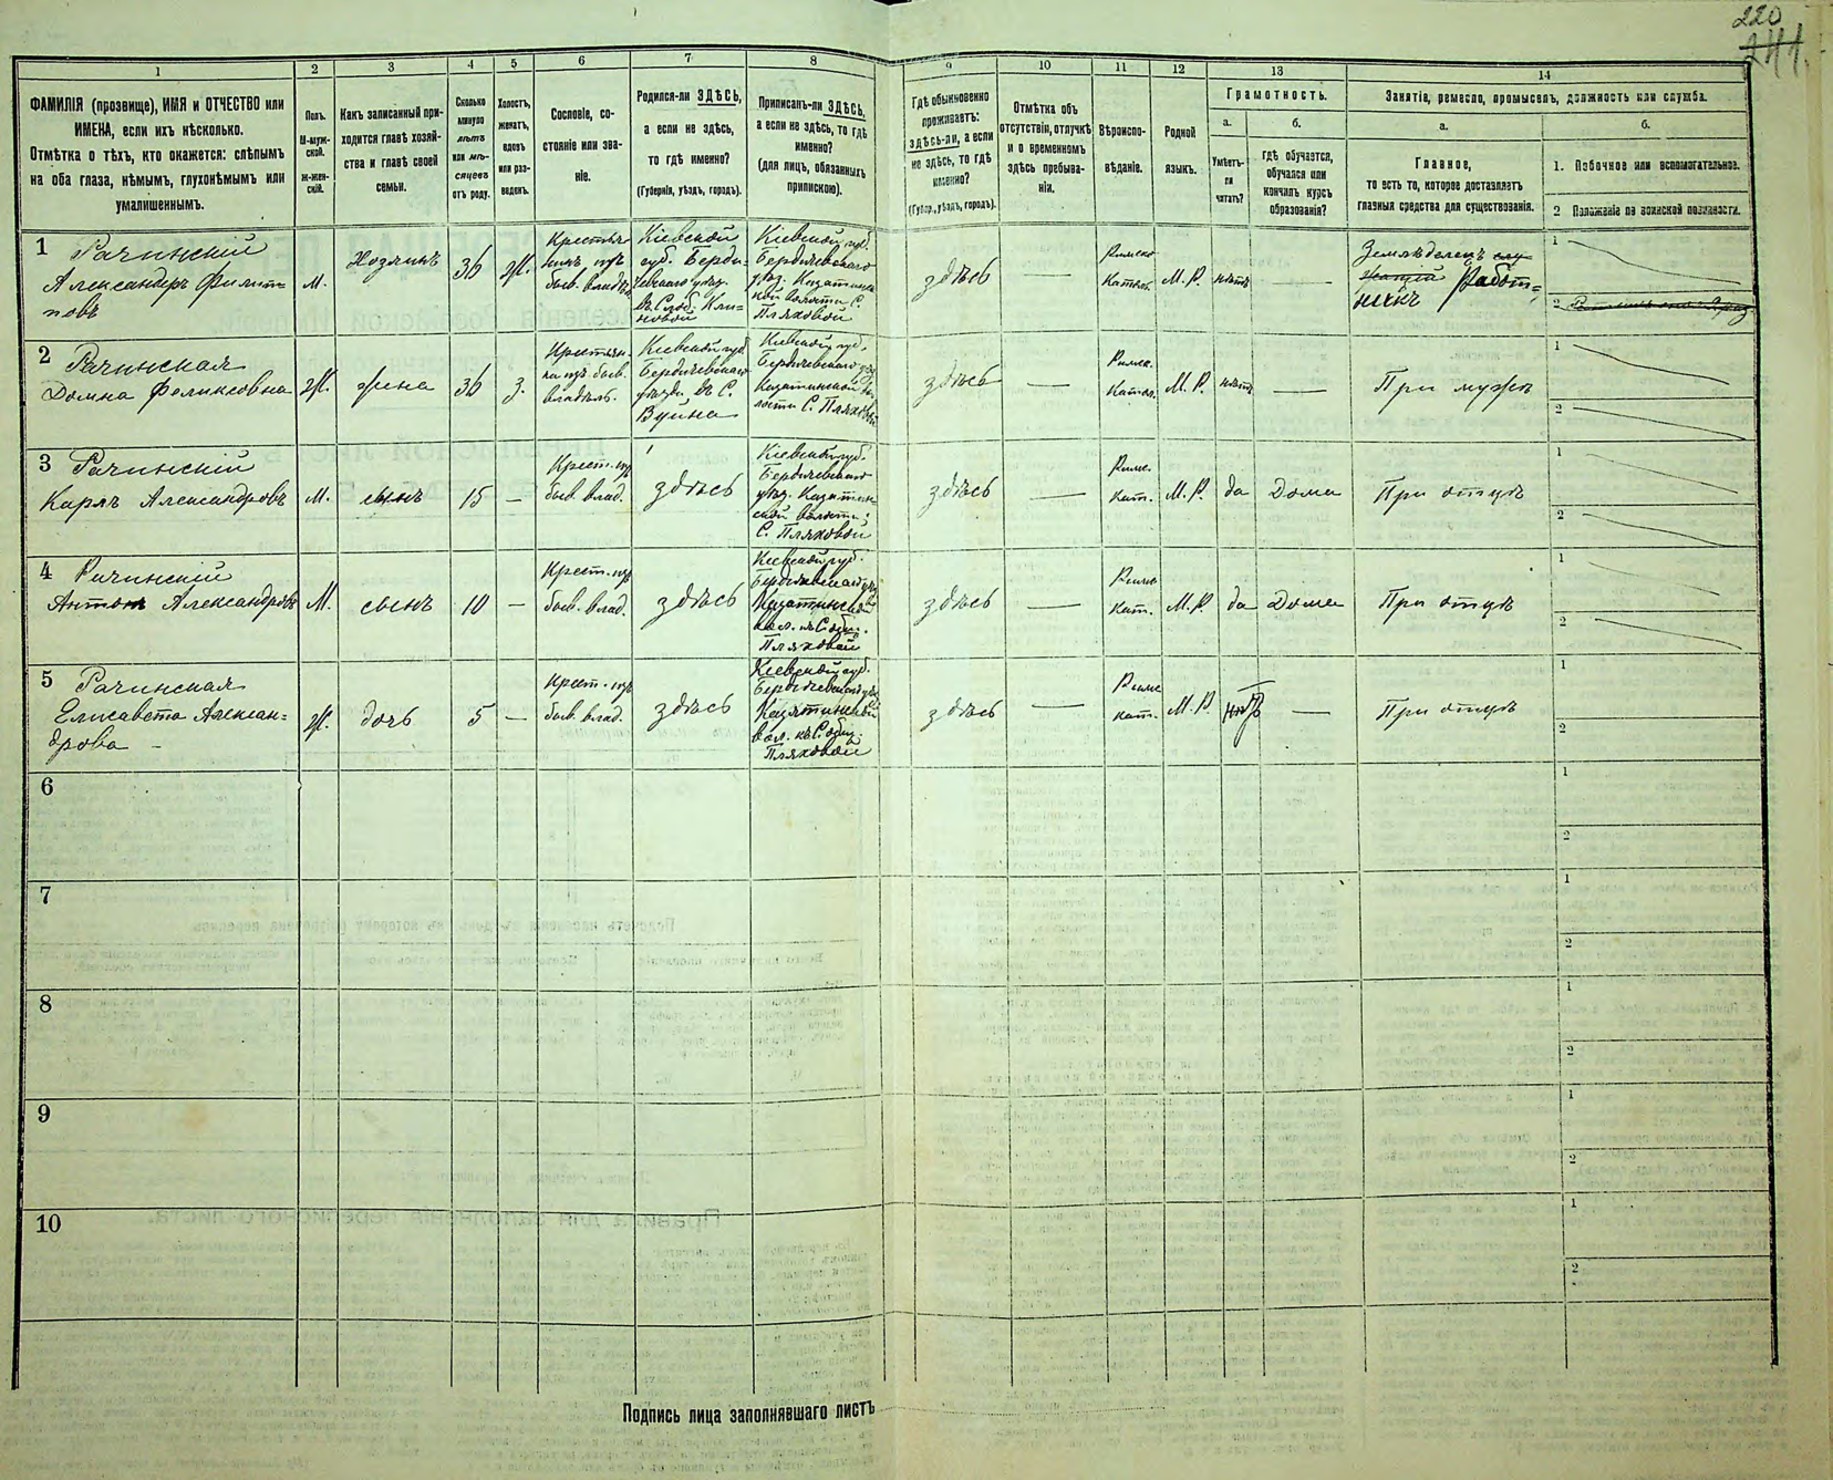 220
241.
1 2 3 4 5 6 7 8 9 10 11 12 13 14
ФАМИЛІЯ (прозвище), ИМЯ и ОТЧЕСТВО или
ИМЕНА, если ихъ нѣсколько.
Отмѣтка о тѣхъ, кто окажется: слѣпымъ
на оба глаза, нѣмымъ, глухонѣмымъ или
умалишеннымъ.
Полъ.
М-муж-
ской.
Ж-жен-
скій.
Какъ записанный при-
ходится главѣ хозяй-
ства и главѣ своей
семьи.
Сколько
минуло
лѣтъ
или мѣ-
сяцевъ
отъ роду.
Холостъ,
женатъ,
вдовъ
или раз-
веденъ.
Сословіе, со-
стояніе или зва-
ніе.
Родился-ли ЗДѢСЬ,
а если не здѣсь,
то гдѣ именно?
(Губернія, уѣздъ, городъ).
Приписанъ-ли ЗДѢСЬ,
а если не здѣсь, то гдѣ
именно?
(для лицъ, обязанныхъ
припискою).
Гдѣ обыкновенно
проживаетъ:
здѣсь-ли, а если
не здѣсь, то гдѣ
именно?
(Губер., уѣздъ, городъ).
Отмѣтка объ
отсутствіи, отлучкѣ
и о временномъ
здѣсь пребыва-
ніи.
Вѣроиспо-
вѣданіе.
Родной
языкъ.
Грамотность.
а.
Умѣетъ-
ли
читать?
б.
гдѣ обучается,
обучался или
кончилъ курсъ
образованія?
Занятіе, ремесло, промыселъ, должность или служба.
а.
Главное,
то есть то, которое доставляетъ
главныя средства для существованія.
б.
1. Побочное или вспомогательное.
2 Положеніе по воинской повинности.
1 Рачинскій
Александръ Филип-
повъ
М.
Хозяинъ
36
Ж.
Крестья-
нинъ изъ
быв. владѣл.
Кіевской
губ. Берди-
чевскаго уѣзд.
Кіевской губ.
Бердичевскаго
уѣзд. Казатинс
кой волости С.
Пляховой
здѣсь
—
Римско
Катол.
М. Р.
нѣтъ
—
Земледѣлецъ
Работ-
никъ
1
2
2 Рачинская
Домна Феликсовна
Ж.
жена
36
З.
Крестьян.
ка изъ быв.
владѣл.
Кіевской губ.
Бердичевскаго
уѣзда, въ С.
Вуйна
Кіевской губ.
Бердичевскаго уѣз.
Казатинской во
лости С. Пляховой
здѣсь
—
Римск.
Катол.
М. Р.
нѣтъ
—
При мужѣ
1
2
3 Рачинскій
Карлъ Александровъ
М.
сынъ
15
—
Крест. изъ
быв. влад.
здѣсь
Кіевской губ.
Бердичевскаго
уѣзд. Казатин-
ской волости
С. Пляховой
здѣсь
—
Римс.
кат.
М. Р.
да
Дома
При отцѣ
1
2
4 Рачинскій
Антонъ Александровъ
М.
сынъ
10
—
Крест. изъ
быв. влад.
здѣсь
Кіевской губ.
Бердичевскаго уѣз.
Казатинской
вол. къ С. общ.
Пляховой
здѣсь
—
Римс
кат.
М. Р.
да
Дома
При отцѣ
1
2
5 Рачинская
Елисавета Алексан-
дрова
Ж.
дочь
5
—
Крест. изъ
быв. влад.
здѣсь
Кіевской губ.
Бердичевскаго уѣз
Казатинской
вол. къ С. общ.
Пляховой
здѣсь
—
Римс
кат.
М. Р.
нѣтъ
—
При отцѣ
1
2
6
1
2
7
1
2
8
1
2
9
1
2
10
1
2
Подпись лица заполнявшаго листъ